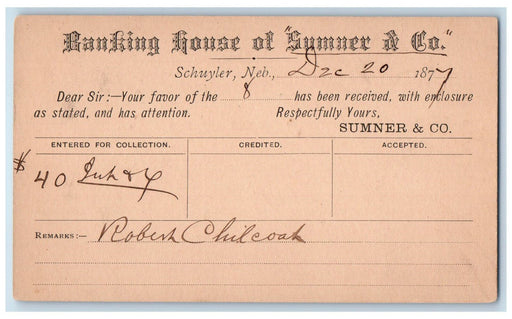 Banking House of "Sumner & Co."
Schuyler, Neb., Dec 20 1877
Dear Sir:—Your favor of the 8 has been received, with enclosure
as stated, and has attention. Respectfully Yours,
SUMNER & CO.
ENTERED FOR COLLECTION. CREDITED. ACCEPTED.
$40 Int &
REMARKS:- Robert Chilcoat